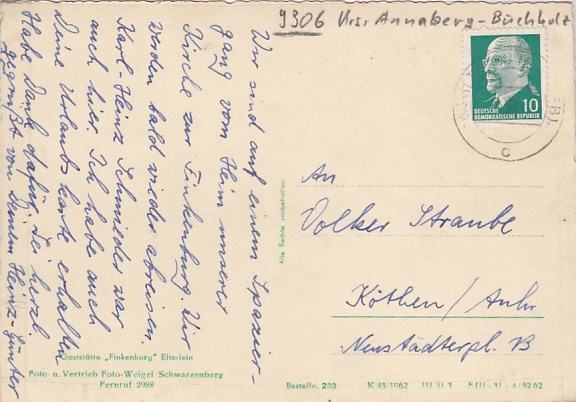 9306 Krs. Annaberg-Buchholz
Wir sind auf einem Spazier-
gang vom Heim unserer
Kirche zur Finkenburg. Wir
werden bald wieder abreisen.
Karl-Heinz Schmieder war
auch hier. Ich habe auch
Deine Urlaubskarte erhalten
Habe Dank dafür. Sei herzl.
gegrüßt von Deinem Heinz-Günter
10
DEUTSCHE
DEMOKRATISCHE REPUBLIK
c
An
Volker Straube
Köthen / Anh.
Neustädterpl. 13
Alle Rechte vorbehalten
Gaststätte „Finkenburg" Elterlein
Foto- u. Vertrieb Foto-Weigel Schwarzenberg
Fernruf 2988
Bestelln. 233 K 45/1962